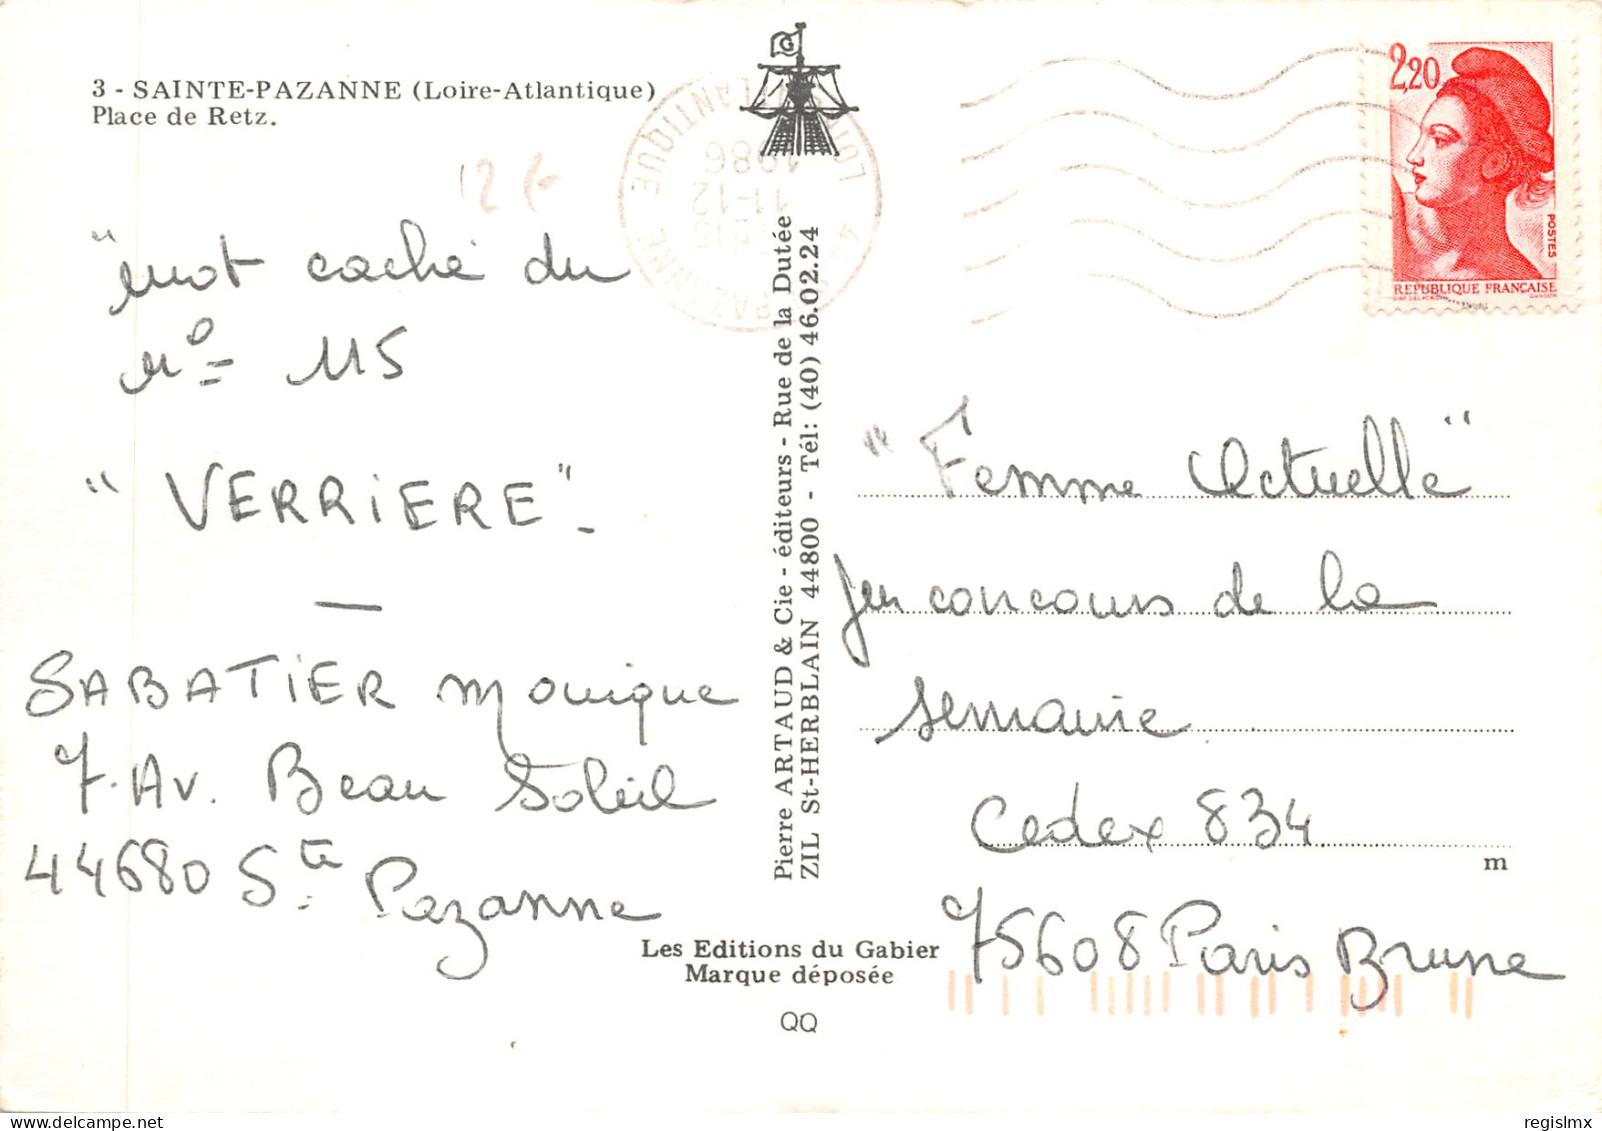 3 - SAINTE-PAZANNE (Loire-Atlantique)
Place de Retz.
12 F
"mot caché du
n° 115
"VERRIERE".
SABATIER Monique
7. Av. Beau Soleil
44680 Ste Pazanne
Pierre ARTAUD & Cie - éditeurs - Rue de la Dutée
ZIL St-HERBLAIN 44800 - Tél: (40) 46.02.24
Les Editions du Gabier
Marque déposée
QQ
LOIRE ATLANTIQUE
1986
11-12
PAZANNE
2,20
POSTES
REPUBLIQUE FRANÇAISE
GANDON
"Femme Actuelle"
Jeu concours de la
semaine
Cedex 834
m
75608 Paris Brune
delcampe.net
regislmx